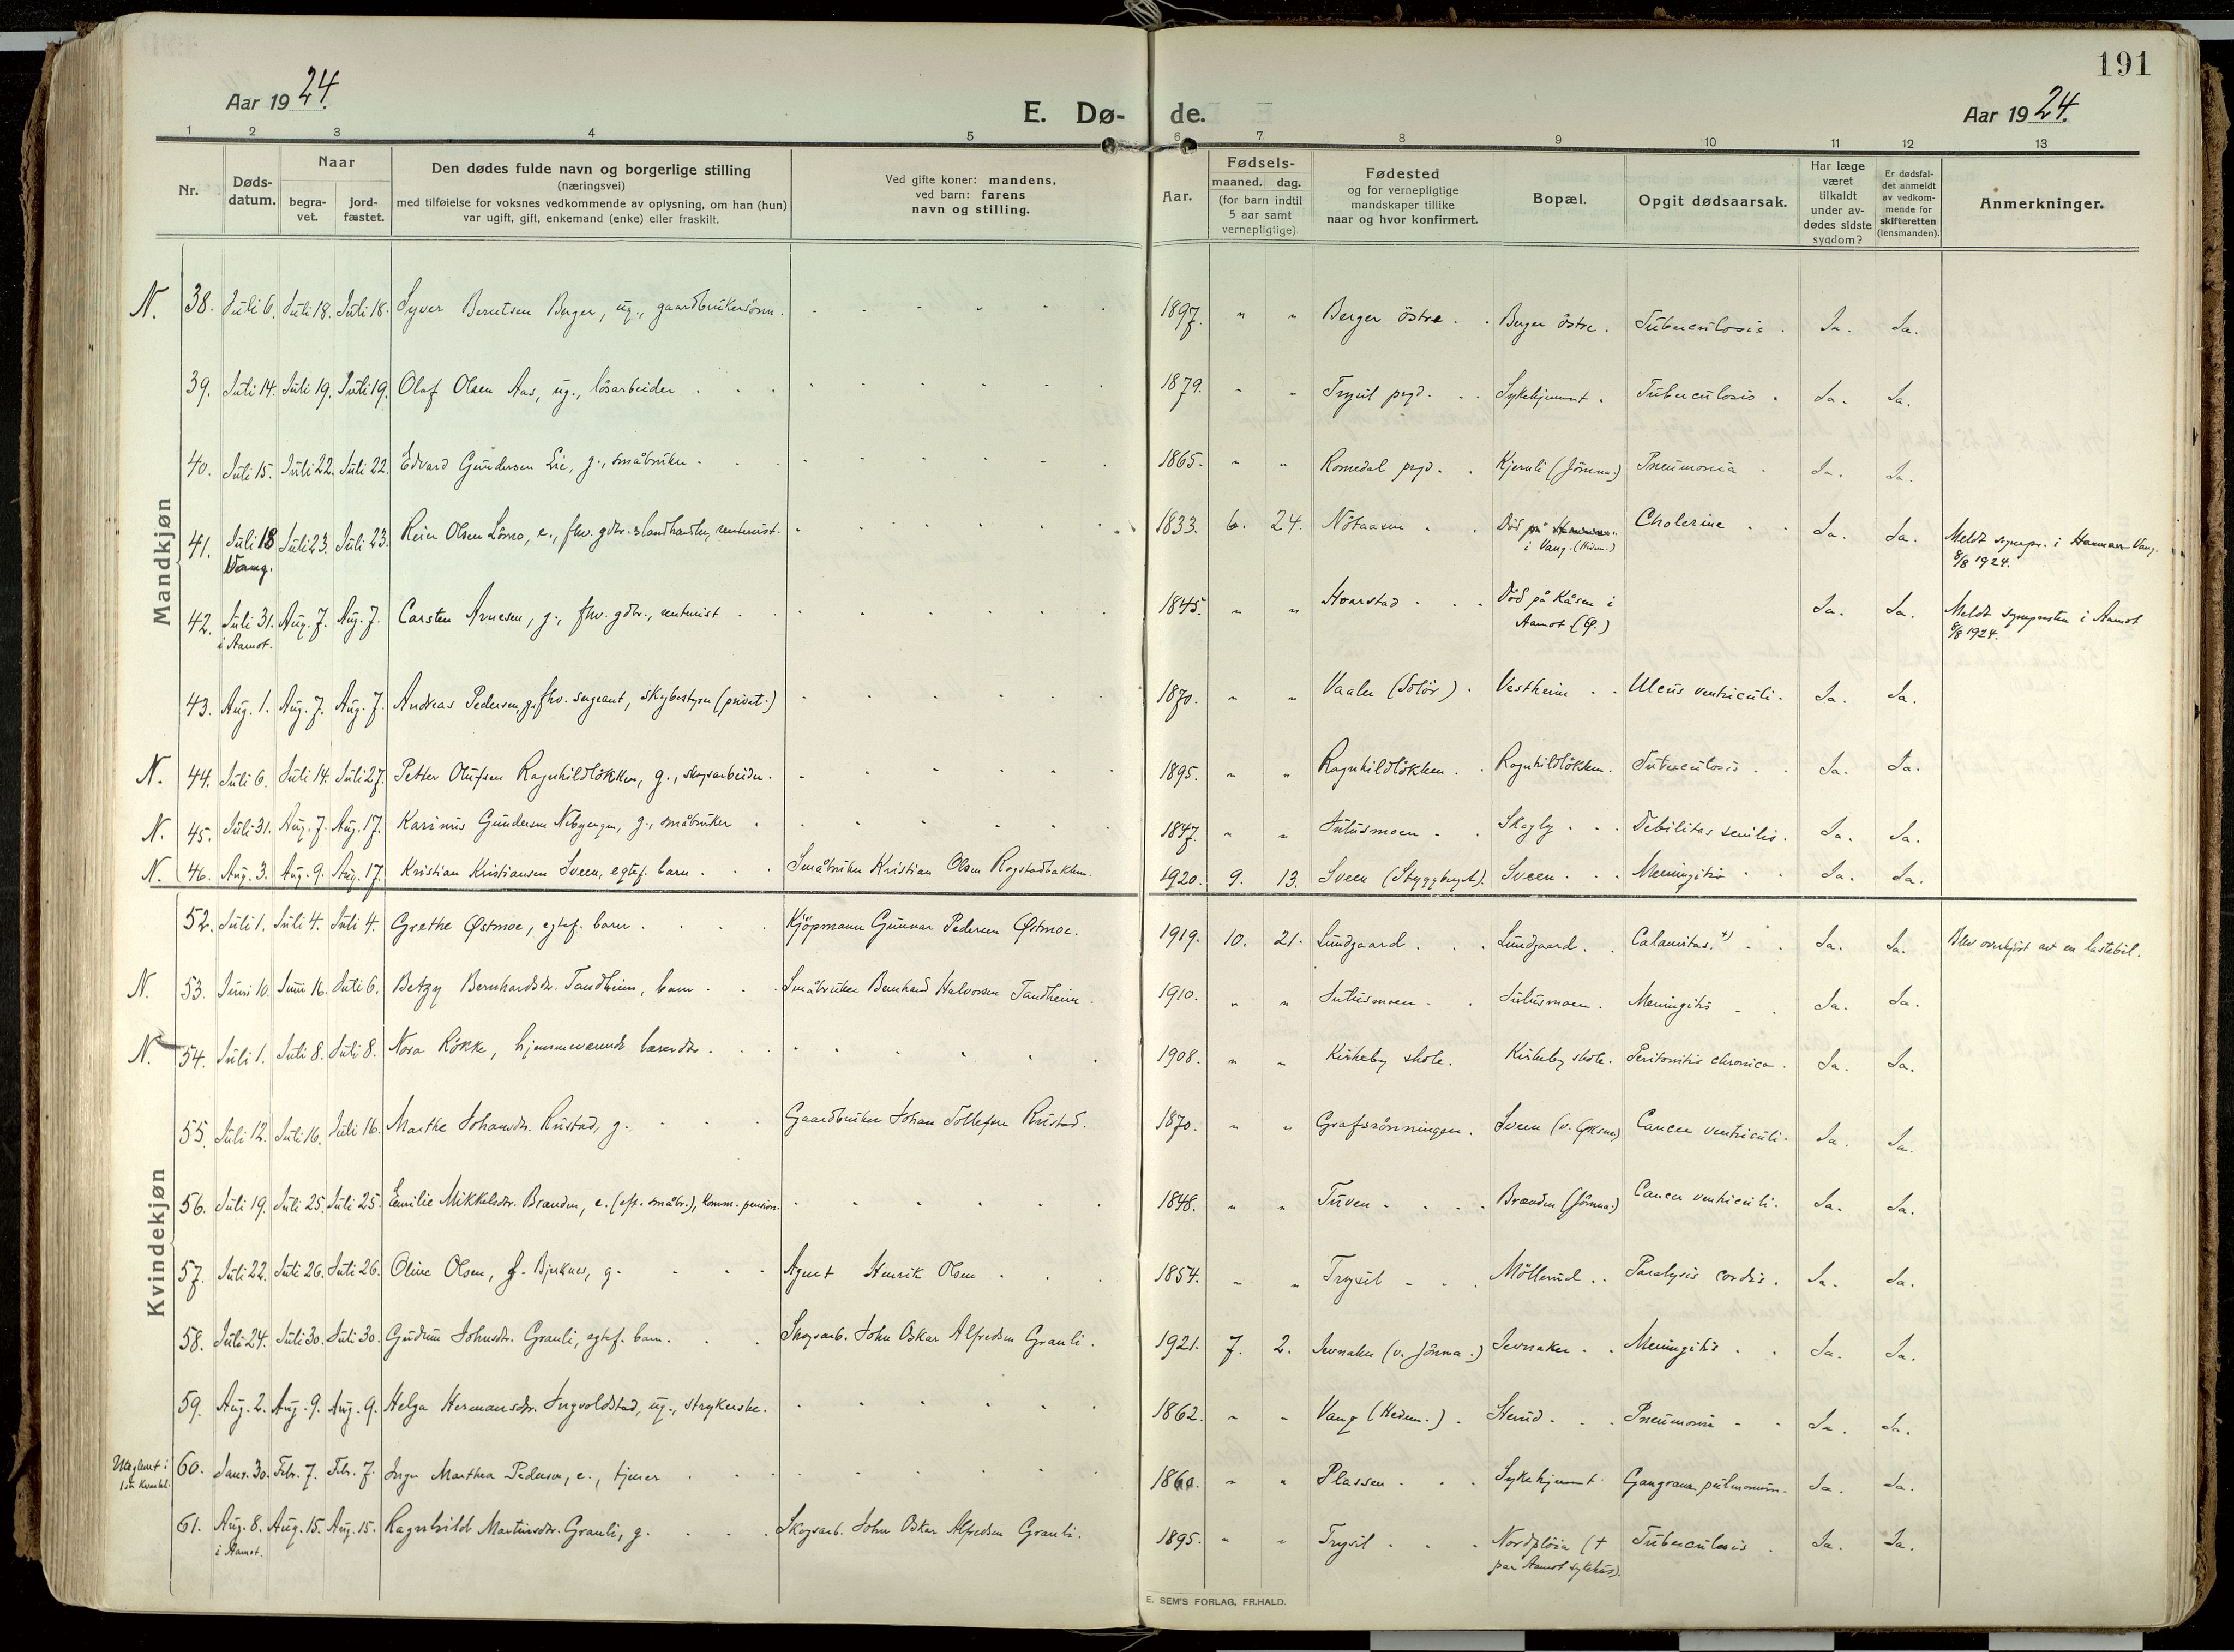 191
Aar 1924.
E. Dø- de.
Aar 1924.
1 2 3 4 5 6 7 8 9 10 11 12 13
Nr.
Døds-
datum.
Naar
begra-
vet.
jord-
fæstet.
Den dødes fulde navn og borgerlige stilling
(næringsvei)
med tilføielse for voksnes vedkommende av oplysning, om han (hun)
var ugift, gift, enkemand (enke) eller fraskilt.
Ved gifte koner: mandens,
ved barn: farens
navn og stilling.
Aar.
Fødsels-
maaned. dag.
(for barn indtil
5 aar samt
vernepligtige).
Fødested
og for vernepligtige
mandskaper tillike
naar og hvor konfirmert.
Bopæl.
Opgit dødsaarsak.
Har læge
været
tilkaldt
under av-
dødes sidste
sygdom?
Er dødsfal-
det anmeldt
av vedkom-
mende for
skifteretten
(lensmanden).
Anmerkninger.
Mandkjøn
N. 38. Juli 6. Juli 18. Juli 18. Syver Berntsen Berger, ug., gaardbrukersönn. 1897. " " Berger östre. Berger östre. Tuberculosis. Ja. Ja.
39. Juli 14. Juli 19. Juli 19. Olaf Olsen Aas, ug., lösarbeider 1879. " " Trysil prgd. Sykehjemmet. Tuberculosis. Ja. Ja.
40. Juli 15. Juli 22. Juli 22. Edvard Gundersen Lie, g., småbruker. 1865. " " Romedal prgd. Kjernli (Jömna.) Pneumonia Ja. Ja.
41. Juli 18 Juli 23. Juli 23. Reier Olsen Lömo, e., fhv. gdbr. & landhandler, rentenist. 1833. 6. 24. Nötaasen Död på
Vang. i Vang. (Hedm.) Cholerine Ja. Ja. Meldt sognepr. i Vang.
8/8 1924.
42. Juli 31. Aug. 7. Aug. 7. Carsten Arnesen, g., fhv. gdbr., rentenist 1845. " " Hoarstad Död på Kåsen i
i Aamot. Aamot (Ö.) Ja. Ja. Meldt sognepresten i Aamot
8/8 1924.
43. Aug. 1. Aug. 7. Aug. 7. Andreas Pedersen, g. fhv. sergeant, skogbestyrer (privat.) 1870. " " Vaaler (Solör). Vestheim Ulcus ventriculi. Ja. Ja.
N. 44. Juli 6. Juli 14. Juli 27. Petter Olufsen Ragnhildlökken, g., skogsarbeider. 1895. " " Ragnhildlökken. Ragnhildlökken. Tuberculosis Ja. Ja.
N. 45. Juli 31. Aug. 7. Aug. 17. Karinus Gundersen Nebyengen, g., småbruker 1847. " " Jutusmoen Skogly Debilitas senilis. Ja. Ja.
N. 46. Aug. 3. Aug. 9. Aug. 17. Kristian Kristiansen Sveen, egtef. barn. Småbruker Kristian Olsen Rogstadbakken. 1920. 9. 13. Sveen Sveen Meningitis Ja. Ja.
Kvindekjøn
52. Juli 1. Juli 4. Juli 4. Grethe Østmoe, egtef. barn. Kjöpmann Gunnar Pedersen Østmoe. 1919. 10. 21. Lundgaard Lundgaard. Calamitas. +) Ja. Ja. Blev overkjört av en lastebil.
N. 53. Juni 10. Juni 16. Juli 6. Betzy Bernhardsdr. Tandheim, barn Småbruker Bernhard Halvorsen Tandheim. 1910. " " Jutusmoen Jutusmoen. Meningitis Ja. Ja.
N. 54. Juli 1. Juli 8. Juli 8. Nora Rökke, hjemmeværende lærerdtr. 1908. " " Kirkeby skole. Kirkeby skole. Peritonitis chronica. Ja. Ja.
55. Juli 12. Juli 16. Juli 16. Marthe Johansdr. Rustad, g. Gaardbruker Johan Tollefsen Rustad. 1870. " " Grafsrönningen. Sveen Cancer ventriculi. Ja. Ja.
56. Juli 19. Juli 25. Juli 25. Emilie Mikkelsdr. Branden, e. (eft. småbr.), komm. pension. 1848. " " Tuven Brænden (Jömna.) Cancer ventriculi. Ja. Ja.
57. Juli 22. Juli 26. Juli 26. Oline Olsen, f. Bjerknes, g. Agent Henrik Olsen 1854. " " Trysil Möllerud Paralysis cordis. Ja. Ja.
58. Juli 24. Juli 30. Juli 30. Gudrun Johnsdr. Grauli, egtef. barn. Skogsarb. John Oskar Alfredsen Grauli. 1921. 7. 2. Jevnaker (v. Jömna.) Jevnaker Meningitis Ja. Ja.
59. Aug. 2. Aug. 9. Aug. 9. Helga Hermansdr. Ingvoldstad, ug., strykerske. 1862. " " Vang (Hedm.). Sterud Pneumonia Ja. Ja.
Uteglemt i
1ste kvartal.
60. Janr. 30. Febr. 7. Febr. 7. Inga Marthea Pedersen, e., tjener 1860. " " Plassen Sykehjemmet. Gangræna pulmonum. Ja. Ja.
61. Aug. 8. Aug. 15. Aug. 15. Ragnhild Martinsdr. Grauli, g. Skogsarb. John Oskar Alfredsen Grauli. 1895. " " Trysil Nordplöia (+ Tuberculosis Ja. Ja.
i Aamot. paa Aamot sykehus).
E. SEM'S FORLAG, FR.HALD.